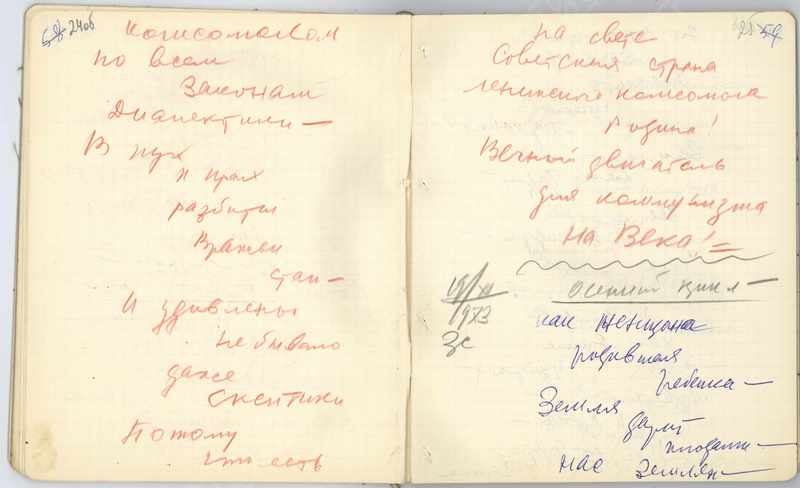 58 24об
Комсомолом
по всем
Законам
Диалектики —
В пух
и прах
разбиты
Вражьи
стан —
И удивлены
небывало
даже
Скептики
Потому
что есть
25 59
на свете
Советская страна
ленинского комсомола
Родина!
Вечный двигатель
для коммунизма
на Века!
19/XI
1973
Зс
осенний цикл —
как женщина
родившая
ребенка —
Земля
дарит
плодами —
нас землян —